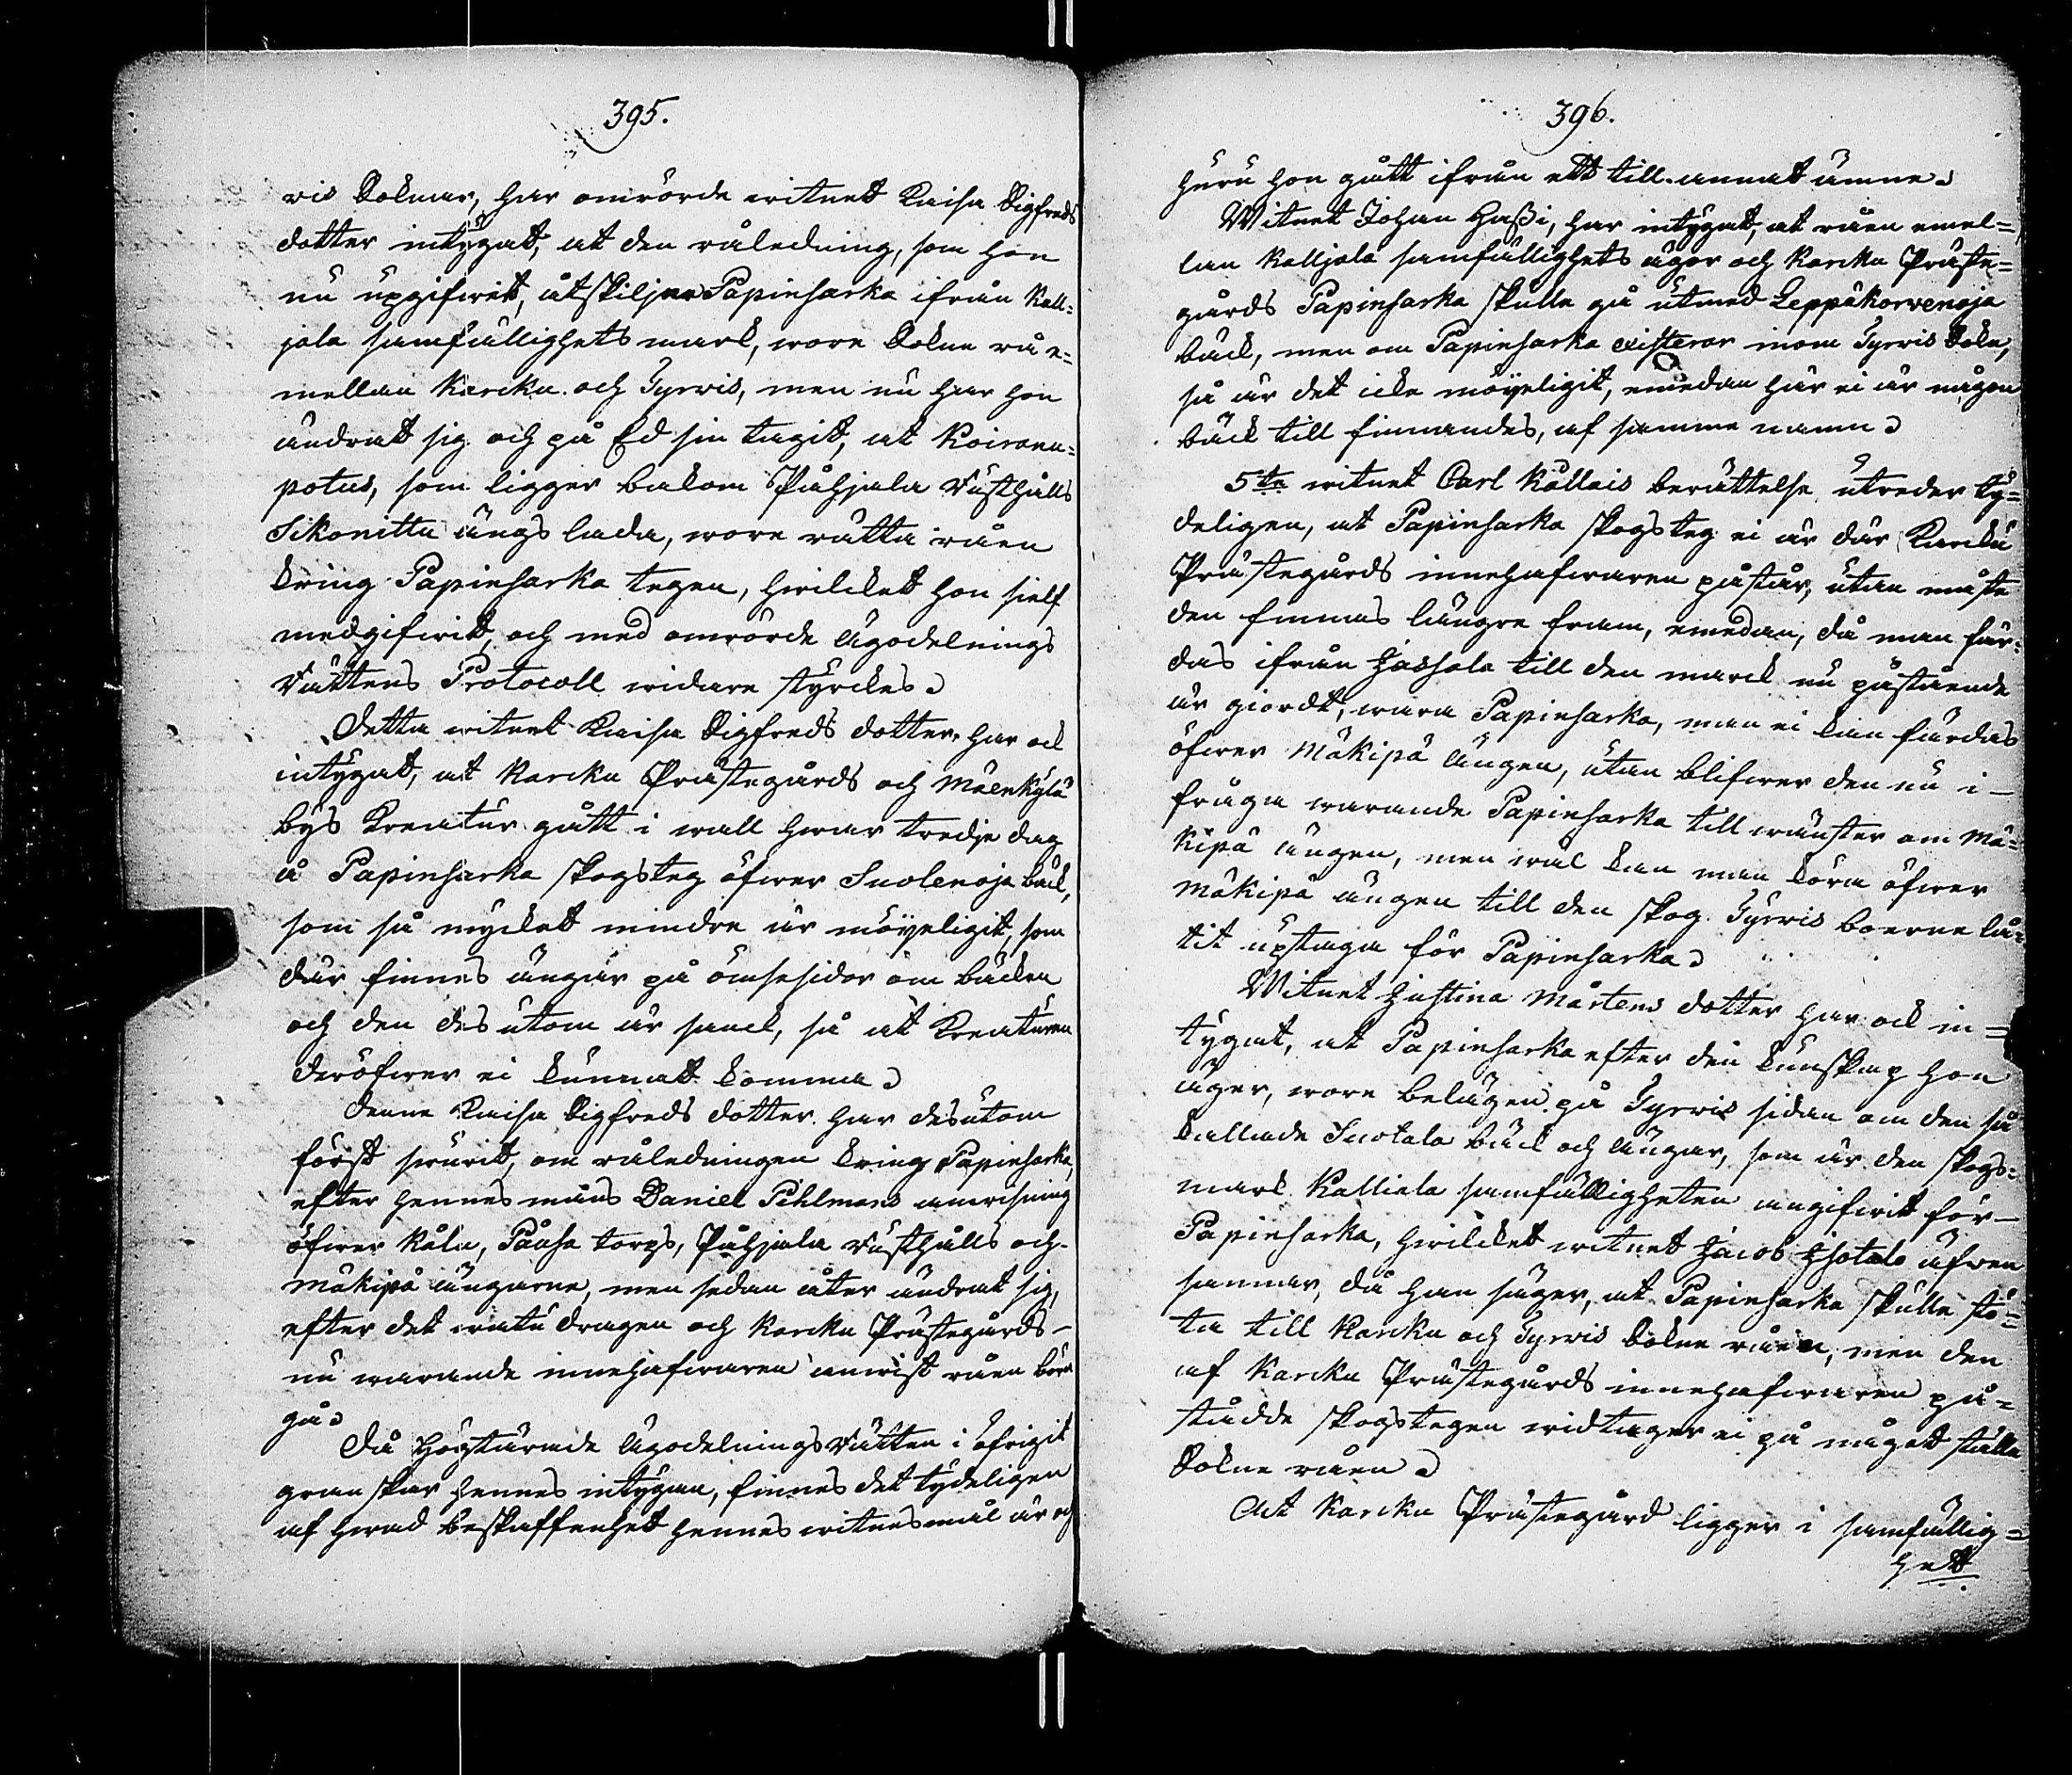 395.
vis Soknar, har omrörde witnet Kaisa Sigfreds
dotter intygat, at den råledning, som hon
nu upgifwit, åtskiljer Papinsarka ifrån Kall=
jala samfällighets mark, wore Sokne rå e=
mellan Karcku och Tyrwis, men nu har hon
ändrat sig och på Ed sin tagit, at Koiranu=
potus, som ligger bakom Påhjala Rusthålls
Sikonittu ängs lada, wore rätta råen
kring Papinsarka tegen, hwilcket hon sielf
medgifwit, och med omrörde Ägodelnings
Rättens Protocoll widare styrckes.
Detta witnet Kaisa Sigfreds dotter har ock
intygat, at Karcku Prästegårds och Mäenkylä
bys Kreatur gått i wall hwar tredje dag
å Papinsarka skogsteg öfwer Suolenoja bäck,
som så mycket mindre är möyeligit, som
där finnes ängar på ömse sidor om bäcken
och den des utom är sanck, så att Kreaturen
deröfwer ei kunnat komma.
Denne Kaisa Sigfreds dotter har desutom
först swurit, om råledningen kring Papinsarka,
efter hennes mans Daniel Pihlmans anwisning
öfwer Kåla, Påusa torps, Påhjala Rusthålls och
Mäkipä ängarne, men sedan åter ändrat sig,
efter det watu dragen och Karcku Prästegårds
nu warande innehafwaren anwist råen böra
gå.
Då Högtärade Ägodelnings Rätten i öfrigit
granskar hennes intygan, finnes det tydeligen
af hwad beskaffenhet hennes witnesmål är och
396.
huru hon gått ifrån ett till annat ämne.
Witnet Johan Haßi, har intygat, at råen emel=
lan Kalljala samfällighets ägor och Karcku Präste=
gårds Papinsarka skulle gå utmed Leppäkorvenoja
bäck, men om Papinsarka existerar inom Tyrwis Sokn,
så är det icke möyeligit, emedan här ei är någon
bäck till finnandes, af samma namn.
5te witnet Carl Källais berättelse utreder ty=
deligen, at Papinsarka skogsteg ei är där Karcku
Prästegårds innehafwaren påstår, utan måste
den finnas längre fram, emedan, då man fär=
das ifrån Jassala till den marck nu påstående
är giordt, wara Papinsarka, man ei kan färdas
öfwer Mäkipä ängen, utan blifwer den nu i
fråga warande Papinsarka till wänster om Mä=
kipä ängen, men wäl kan man köra öfwer
Mäkipä ängen till den skog Tyrwis boerne lå=
tit uptaga för Papinsarka.
Witnet Justina Mårtens dotter har ock in=
tygat, at Papinsarka efter den kunskap hon
äger, wore belägen på Tyrwis sidan om den så
kallade Suotala bäck och ängar, som är den skogs=
mark Kalliala samfälligheten angifwit för
Papinsarka, hwilcket witnet Jacob Isotalo äfwen
sannar, då han säger, at Papinsarka skulle stö=
ta till Karcku och Tyrwis Sokne råen, men den
af Karcku Prästegårds innehafwaren på=
stådde skogstegen widtager ei på något ställe
Sokne råen.
At Karcku Prästegård ligger i samfällig=
hett